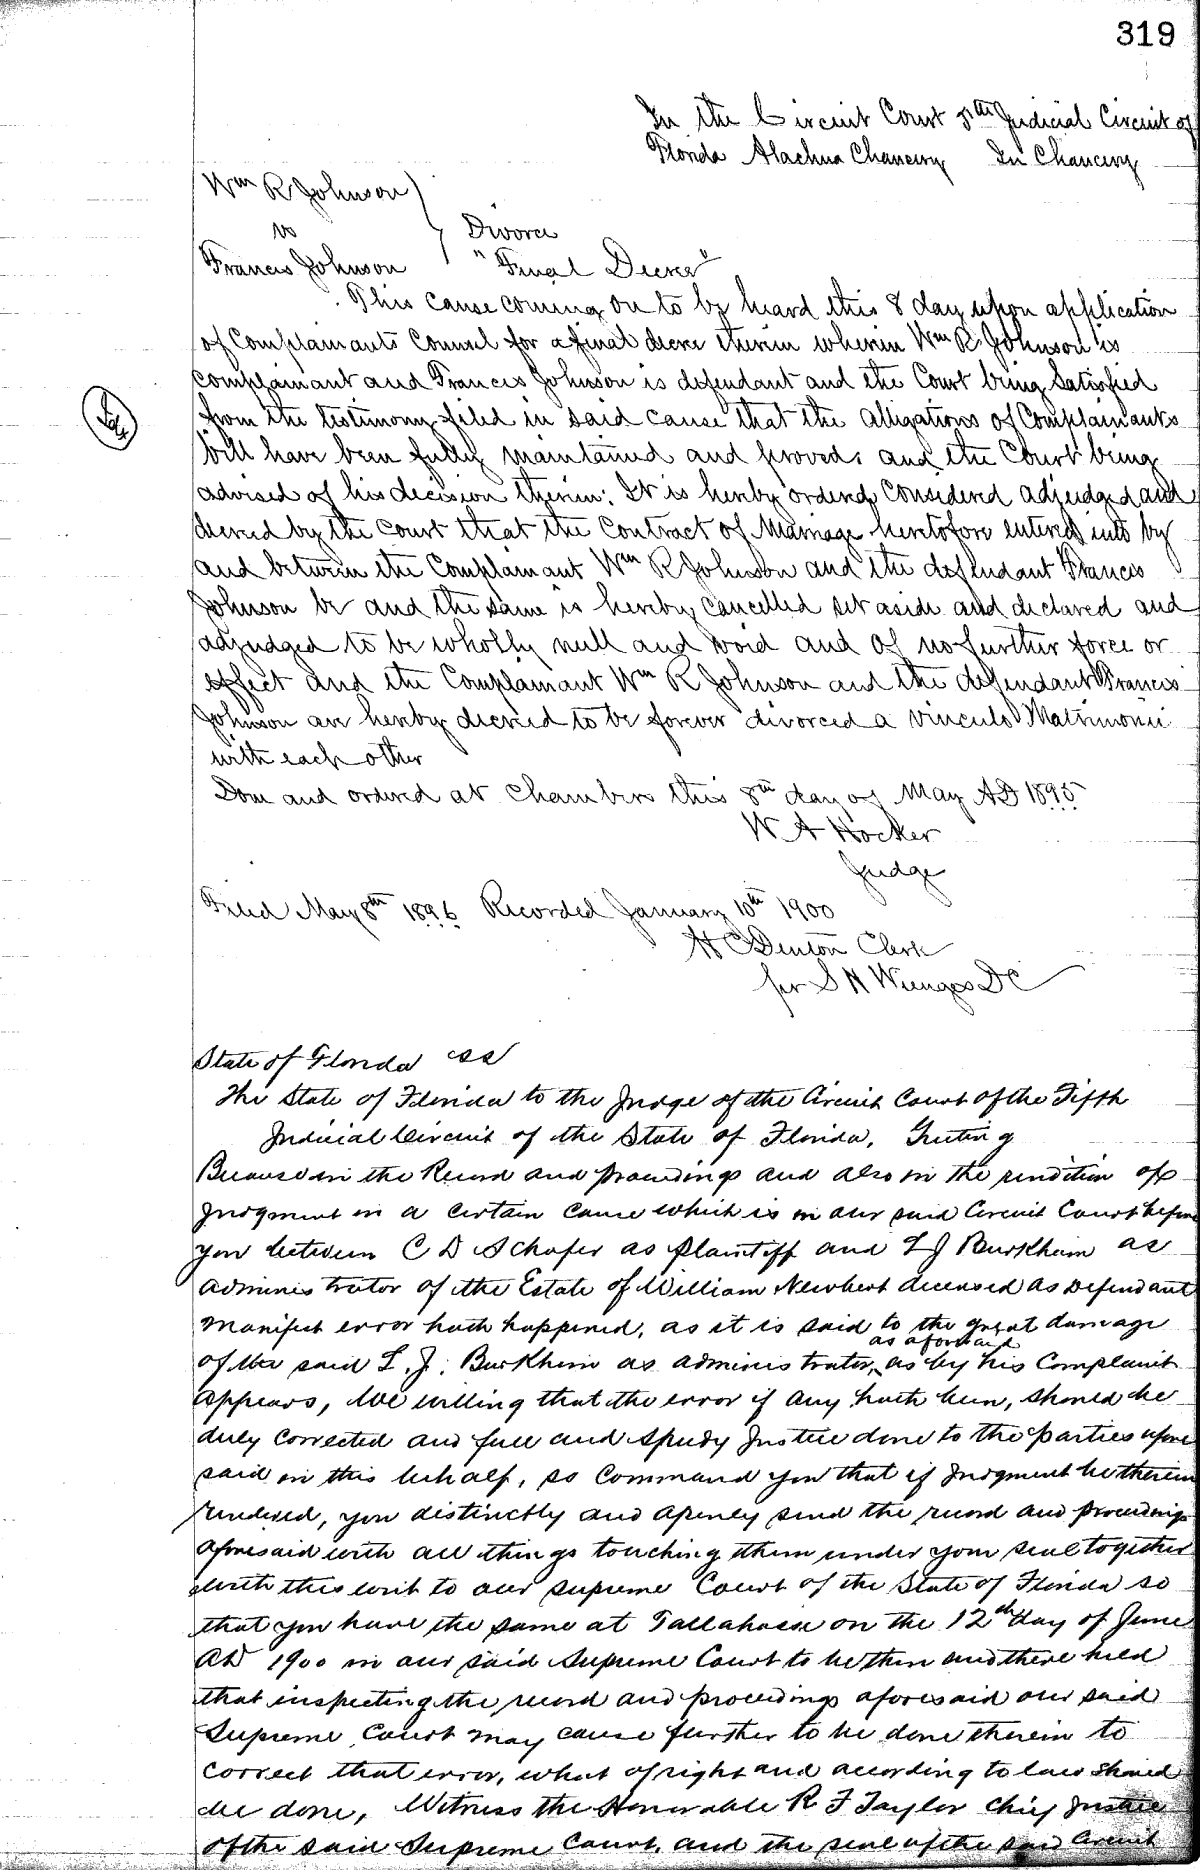 319
In the Circuit Court 5th Judicial Circuit of
Florida Alachua Chancery In Chancery
Wm R Johnson
vs
Divorce
Francis Johnson "Final Decree"
This cause coming on to be heard this 8 day upon application
of Complainants Counsel for a final decree therein wherein Wm R Johnson is
complainant and Francis Johnson is defendant and the Court being Satisfied
from the testimony filed in said cause that the alligations of Complainants
bill have been fully maintained and proved, and the Court being
advised of his decision therein: It is hereby ordered Considered adjudged and
decreed by the Court that the Contract of Marriage heretofore entered into by
and between the Complainant Wm R Johnson and the defendant Francis
Johnson be and the same is hereby Cancelled set aside and declared and
adjudged to be wholly null and void and of no further force or
effect and the Complainant Wm R Johnson and the defendant Francis
Johnson are hereby decreed to be forever divorced a vinculo Matrimonii
with each other
Done and ordered at Chambers this 8th day of May AD 1895
W A Hocker
Judge
Filed May 8th 1896 Recorded January 10th 1900
H C Denton Clerk
per S H Wienges DC
State of Florida ss
The State of Florida to the Judge of the Circuit Court of the Fifth
Judicial Circuit of the State of Florida, Greeting
Because in the Record and proceedings and also in the rendition of
Judgment in a certain cause which is in our said Circuit Court before
you between C D Schafer as plaintiff and L J Burkhim as
administrator of the Estate of William Newbert deceased as Defendant
manifest error hath happened, as it is said to the great damage
as aforesaid
of the said L. J. Burkhim as administrator, as by his Complaint
appears, We willing that the error if any hath been, should be
duly corrected and full and speedy Justice done to the parties afore
said in this behalf, so Command you that if Judgment be therein
rendered, you distinctly and openly send the record and proceedings
aforesaid with all things touching them under your seal together
with this writ to our supreme Court of the State of Florida so
that you have the same at Tallahassee on the 12th day of June
AD 1900 in our said Supreme Court to be then and there held
that inspecting the record and proceedings aforesaid our said
Supreme Court may cause further to be done therein to
correct that error, what of right and according to law should
be done, Witness the Honorable R F Taylor Chief Justice
of the said Supreme Court, and the seal of the said Circuit